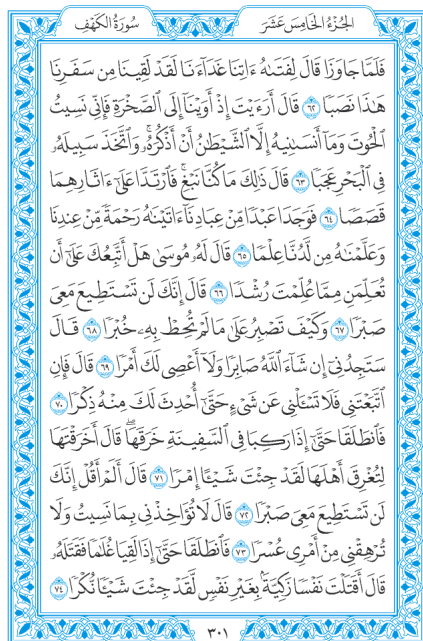 الجُزْءُ الخَامِسَ عَشَرَ
سُورَةُ الكَهْفِ
فَلَمَّا جَاوَزَا قَالَ لِفَتَىٰهُ ءَاتِنَا غَدَآءَنَا لَقَدْ لَقِينَا مِن سَفَرِنَا
هَٰذَا نَصَبٗا ٦٢ قَالَ أَرَءَيْتَ إِذْ أَوَيْنَآ إِلَى ٱلصَّخْرَةِ فَإِنِّي نَسِيتُ
ٱلْحُوتَ وَمَآ أَنسَىٰنِيهُ إِلَّا ٱلشَّيْطَٰنُ أَنْ أَذْكُرَهُۥۚ وَٱتَّخَذَ سَبِيلَهُۥ
فِي ٱلْبَحْرِ عَجَبٗا ٦٣ قَالَ ذَٰلِكَ مَا كُنَّا نَبْغِۚ فَٱرْتَدَّا عَلَىٰٓ ءَاثَارِهِمَا
قَصَصٗا ٦٤ فَوَجَدَا عَبْدٗا مِّنْ عِبَادِنَآ ءَاتَيْنَٰهُ رَحْمَةٗ مِّنْ عِندِنَا
وَعَلَّمْنَٰهُ مِن لَّدُنَّا عِلْمٗا ٦٥ قَالَ لَهُۥ مُوسَىٰ هَلْ أَتَّبِعُكَ عَلَىٰٓ أَن
تُعَلِّمَنِ مِمَّا عُلِّمْتَ رُشْدٗا ٦٦ قَالَ إِنَّكَ لَن تَسْتَطِيعَ مَعِيَ
صَبْرٗا ٦٧ وَكَيْفَ تَصْبِرُ عَلَىٰ مَا لَمْ تُحِطْ بِهِۦ خُبْرٗا ٦٨ قَالَ
سَتَجِدُنِيٓ إِن شَآءَ ٱللَّهُ صَابِرٗا وَلَآ أَعْصِي لَكَ أَمْرٗا ٦٩ قَالَ فَإِنِ
ٱتَّبَعْتَنِي فَلَا تَسْـَٔلْنِي عَن شَيْءٍ حَتَّىٰٓ أُحْدِثَ لَكَ مِنْهُ ذِكْرٗا ٧٠
فَٱنطَلَقَا حَتَّىٰٓ إِذَا رَكِبَا فِي ٱلسَّفِينَةِ خَرَقَهَاۖ قَالَ أَخَرَقْتَهَا
لِتُغْرِقَ أَهْلَهَا لَقَدْ جِئْتَ شَيْـًٔا إِمْرٗا ٧١ قَالَ أَلَمْ أَقُلْ إِنَّكَ
لَن تَسْتَطِيعَ مَعِيَ صَبْرٗا ٧٢ قَالَ لَا تُؤَاخِذْنِي بِمَا نَسِيتُ وَلَا
تُرْهِقْنِي مِنْ أَمْرِي عُسْرٗا ٧٣ فَٱنطَلَقَا حَتَّىٰٓ إِذَا لَقِيَا غُلَٰمٗا فَقَتَلَهُۥ
قَالَ أَقَتَلْتَ نَفْسٗا زَكِيَّةَۢ بِغَيْرِ نَفْسٖ لَّقَدْ جِئْتَ شَيْـٔٗا نُّكْرٗا ٧٤
٣٠١